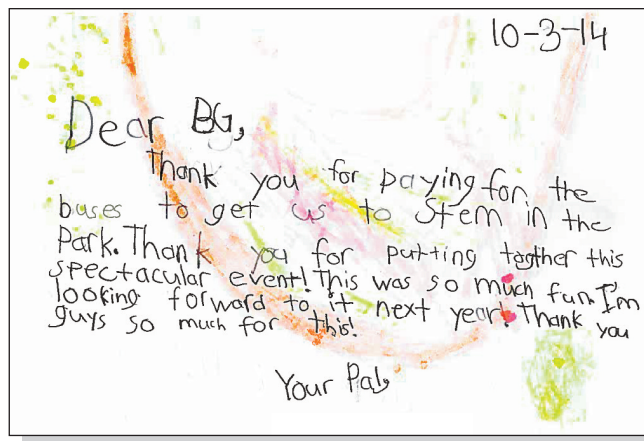 10-3-14
Dear BG,
Thank you for paying for the
buses to get us to Stem in the
Park. Thank you for putting togther this
spectacular event! This was so much fun. I'm
looking forward to it next year! Thank you
guys so much for this!
Your Pal,